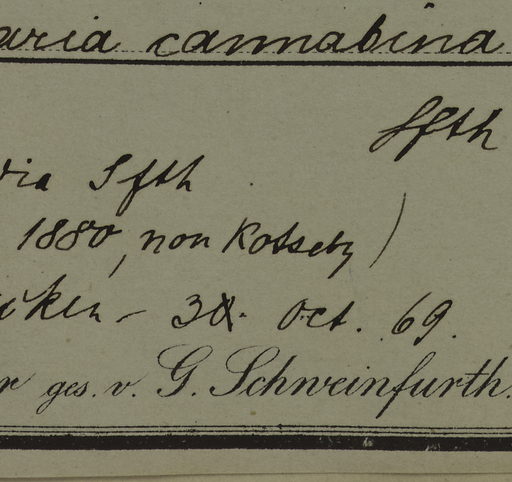 aria cannabina
Sfth
ria Sfth
1880, non Kotschy)
iken - 30. Oct. 69.
r ges. v. G. Schweinfurth.